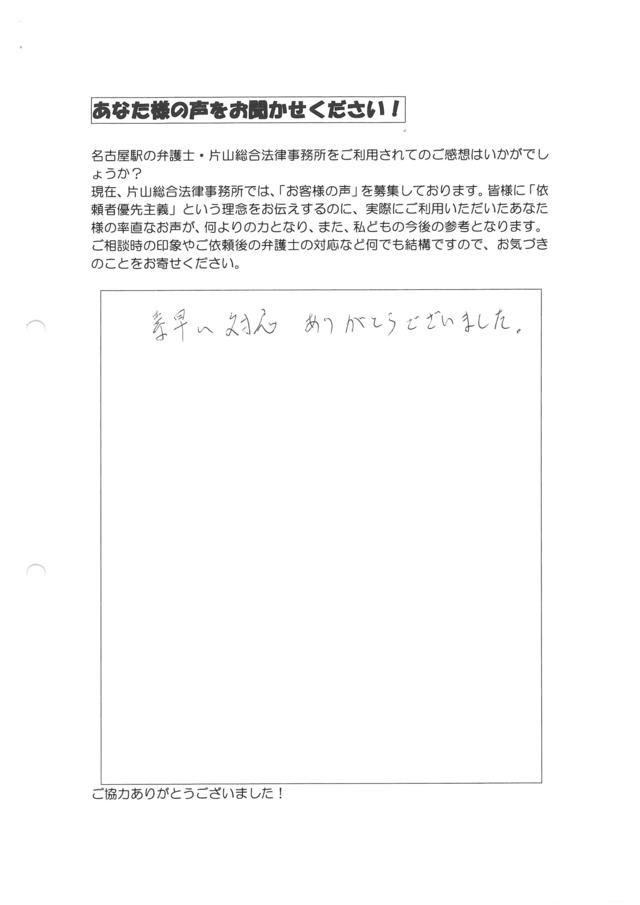 あなた様の声をお聞かせください！
名古屋駅の弁護士・片山総合法律事務所をご利用されてのご感想はいかがでし
ょうか？
現在、片山総合法律事務所では、「お客様の声」を募集しております。皆様に「依
頼者優先主義」という理念をお伝えするのに、実際にご利用いただいたあなた
様の率直なお声が、何よりの力となり、また、私どもの今後の参考となります。
ご相談時の印象やご依頼後の弁護士の対応など何でも結構ですので、お気づき
のことをお寄せください。
素早い対応 ありがとうございました。
ご協力ありがとうございました！